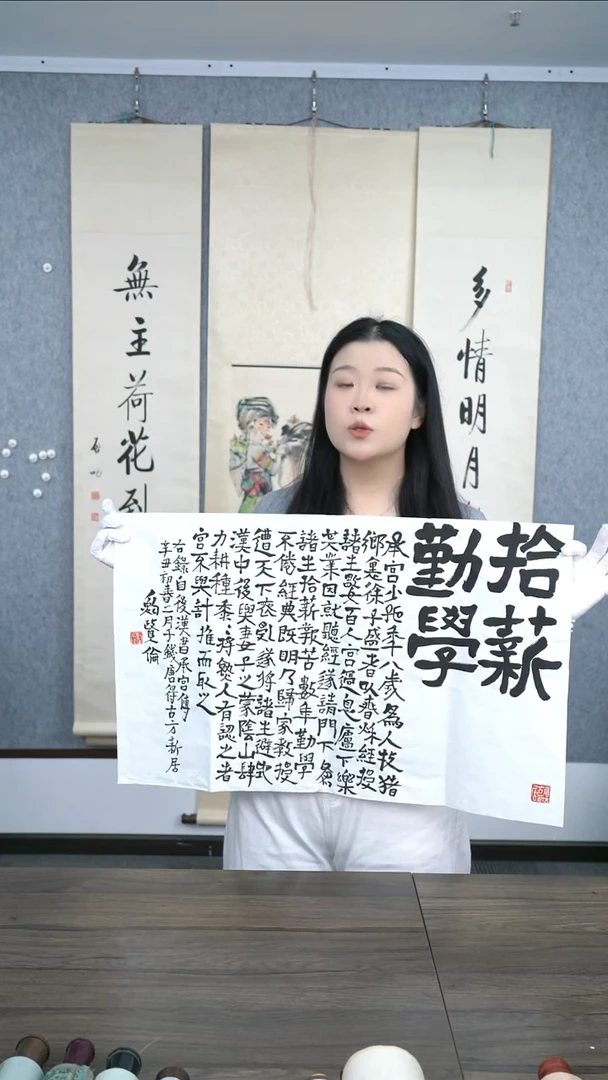 多情明月
無主荷花到
啟功
拾薪
勤學
承宮少孤年八歲為人牧猪
鄉里徐子盛者以春秋經授
諸生數百人宮過息廬下樂
其業因就聽經遂請門下為
諸生拾薪執苦數年勤學
不倦經典既明乃歸家教授
遭天下喪亂遂將諸生避地
漢中後與妻子之蒙陰山肆
力耕種黍將熟人有認之者
宮不與計推而之
右錄自後漢書承宮傳
辛丑初春二月于錢唐古方新居
賢倫